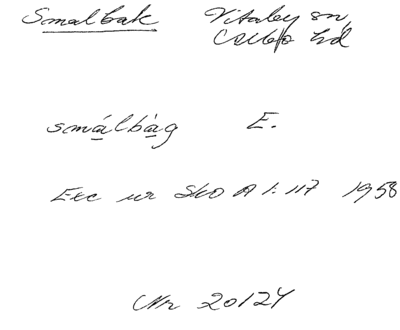 Smalbak Vitaby sn,
Csubo hd
smálbag E.
Exc ur Sko A 1:117 1958
Nr 20124